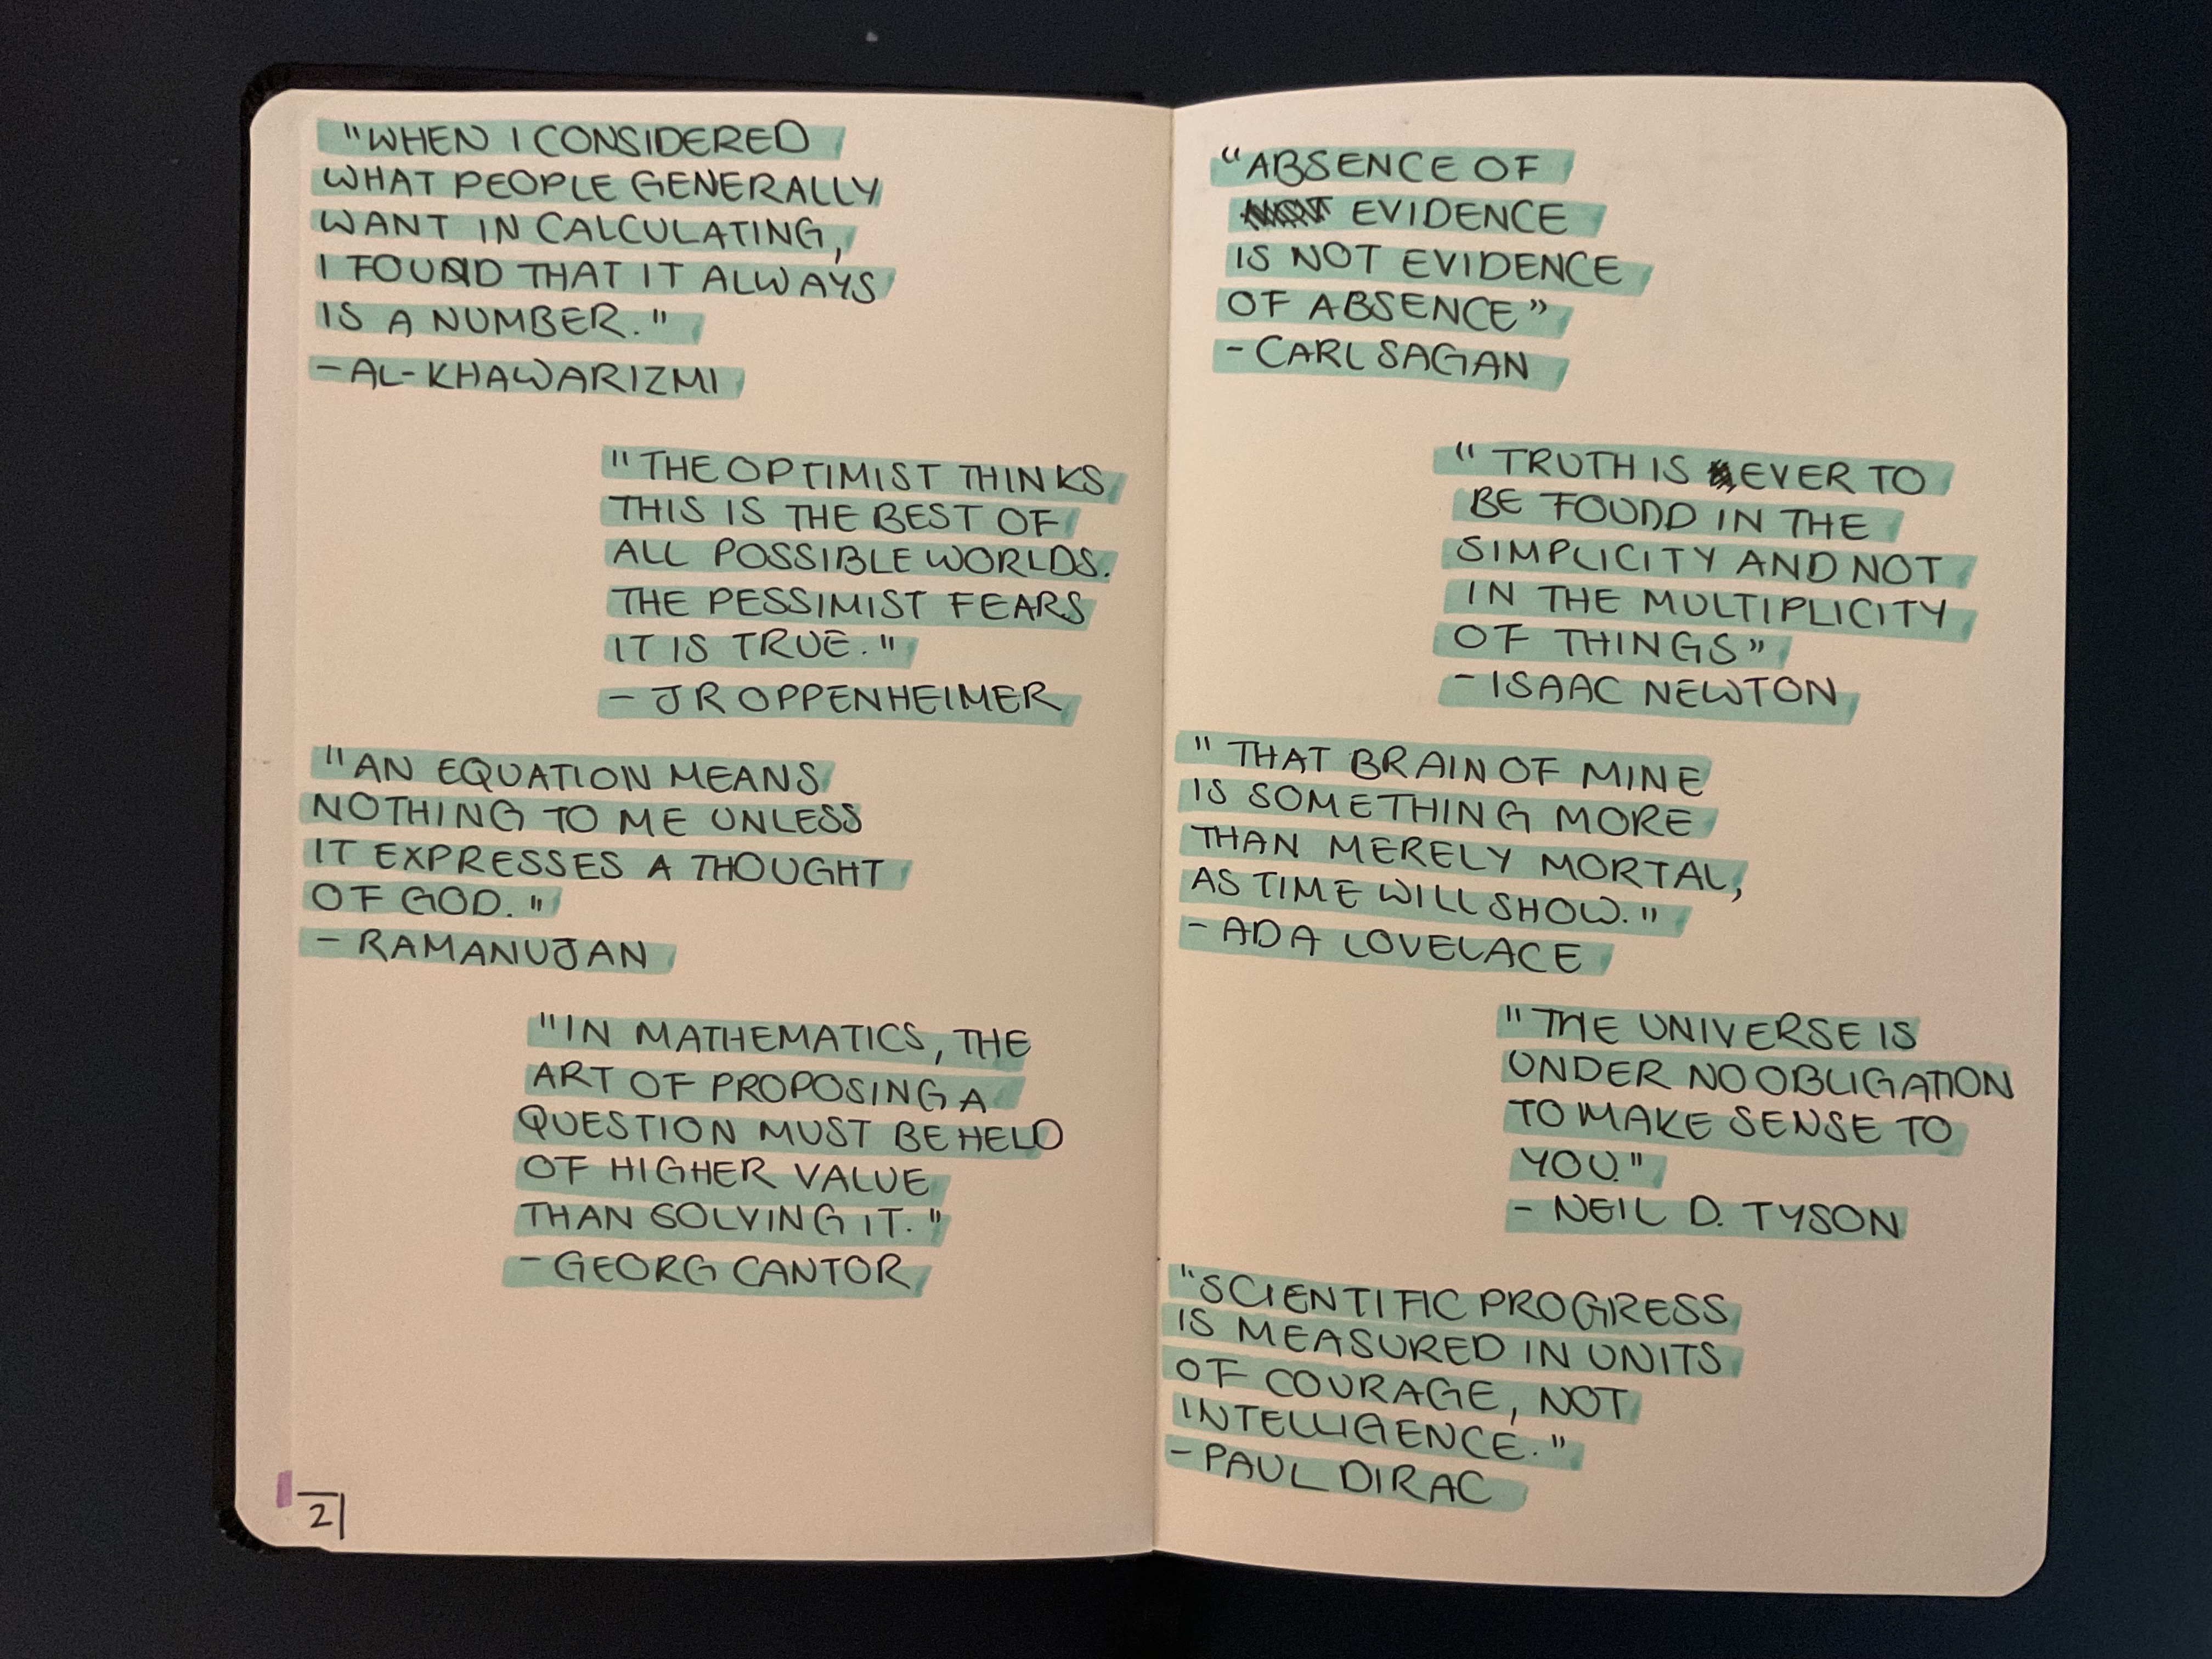 "WHEN I CONSIDERED
WHAT PEOPLE GENERALLY
WANT IN CALCULATING,
I FOUND THAT IT ALWAYS
IS A NUMBER."
- AL-KHAWARIZMI
"THE OPTIMIST THINKS
THIS IS THE BEST OF
ALL POSSIBLE WORLDS.
THE PESSIMIST FEARS
IT IS TRUE."
- J R OPPENHEIMER
"AN EQUATION MEANS
NOTHING TO ME UNLESS
IT EXPRESSES A THOUGHT
OF GOD."
- RAMANUJAN
"IN MATHEMATICS, THE
ART OF PROPOSING A
QUESTION MUST BE HELD
OF HIGHER VALUE
THAN SOLVING IT."
- GEORG CANTOR
2
"ABSENCE OF
EVIDENCE
IS NOT EVIDENCE
OF ABSENCE"
- CARL SAGAN
"TRUTH IS EVER TO
BE FOUND IN THE
SIMPLICITY AND NOT
IN THE MULTIPLICITY
OF THINGS"
- ISAAC NEWTON
"THAT BRAIN OF MINE
IS SOMETHING MORE
THAN MERELY MORTAL,
AS TIME WILL SHOW."
- ADA LOVELACE
"THE UNIVERSE IS
UNDER NO OBLIGATION
TO MAKE SENSE TO
YOU."
- NEIL D. TYSON
"SCIENTIFIC PROGRESS
IS MEASURED IN UNITS
OF COURAGE, NOT
INTELLIGENCE."
- PAUL DIRAC